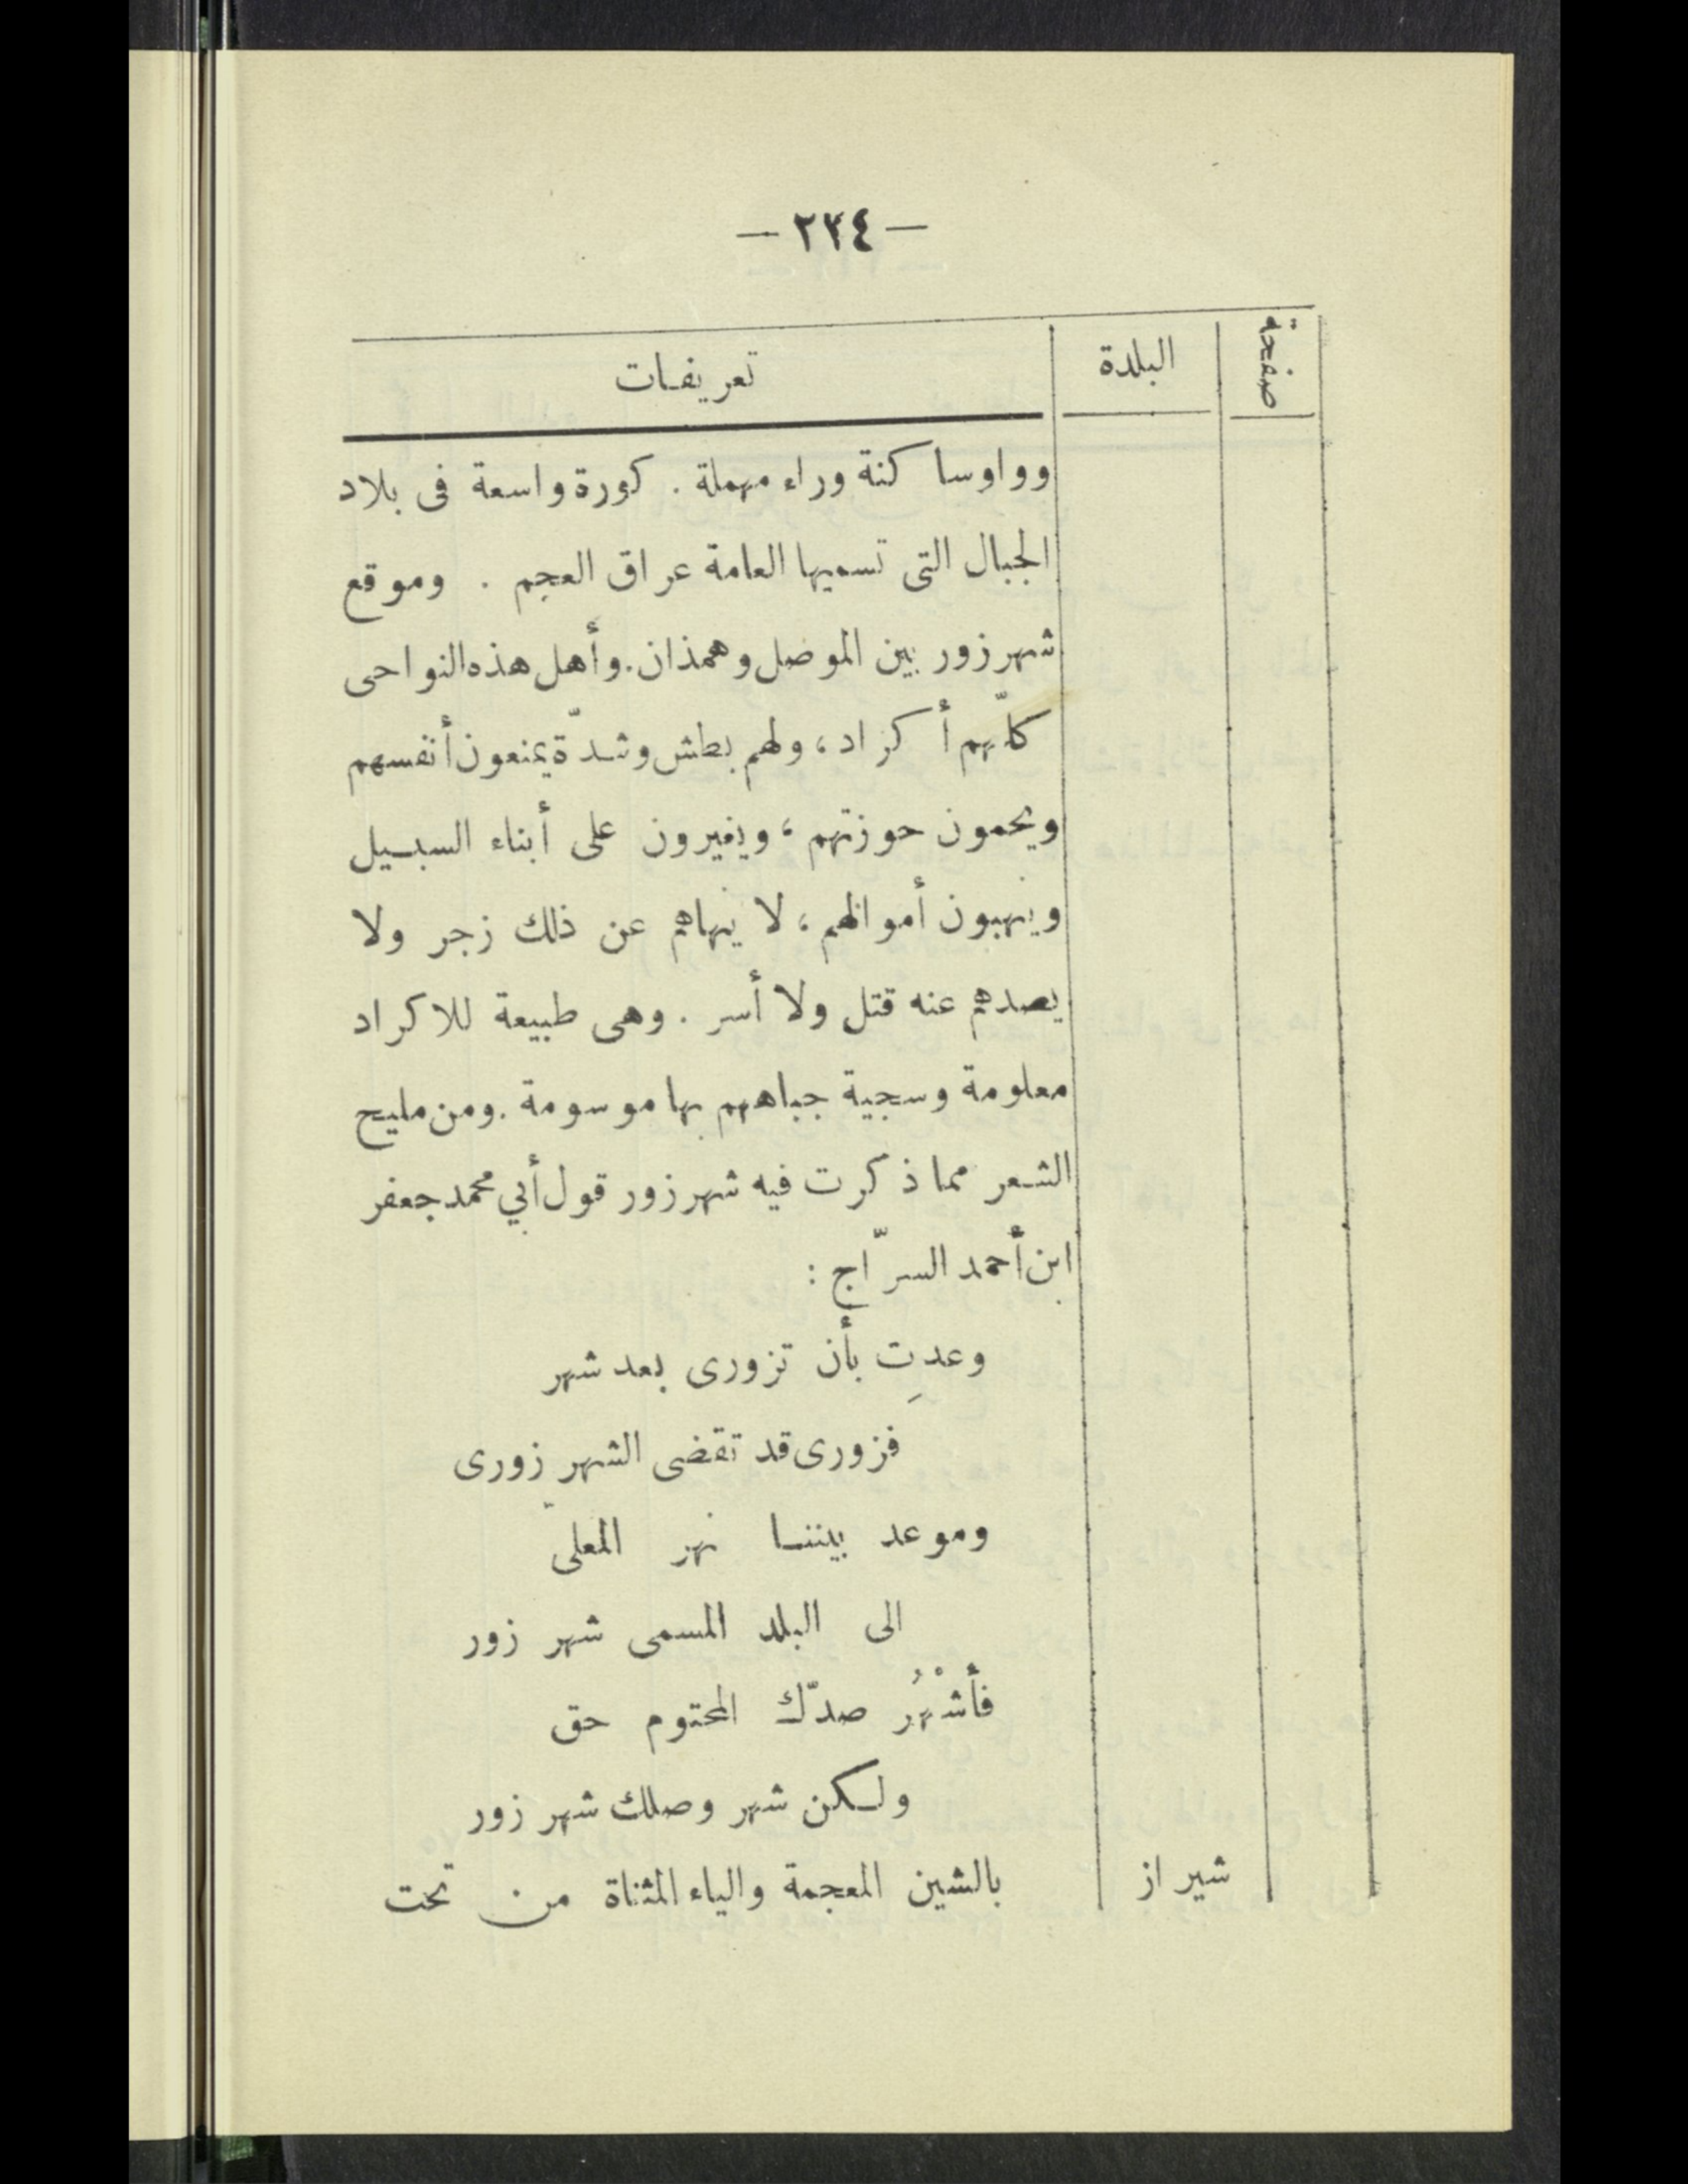 — ٢٢٤ —
صفحة البلدة تعريفات
وواوساكنة وراء مهملة . كورة واسعة فى بلاد
الجبال التى تسميها العامة عراق العجم . وموقع
شهرزور بين الموصل وهمذان. وأهل هذه النواحى
كلّهم أكراد ، ولهم بطش وشدّة يمنعون أنفسهم
ويحمون حوزتهم ، ويغيرون على أبناء السبيل
وينهبون أموالهم ، لا ينهاهم عن ذلك زجر ولا
يصدهم عنه قتل ولا أسر . وهى طبيعة للاكراد
معلومة وسجية جباههم بها موسومة . ومن مليح
الشعر مما ذكرت فيه شهرزور قول أبي محمد جعفر
ابن أحمد السرّاج :
وعدتِ بأن تزورى بعد شهر
فزورى قد تقضى الشهر زورى
وموعد بيننا نهر المعلى
الى البلد المسمى شهر زور
فأشْهُر صدّك المحتوم حق
ولكن شهر وصلك شهر زور
شيراز بالشين المعجمة والياء المثناة من تحت